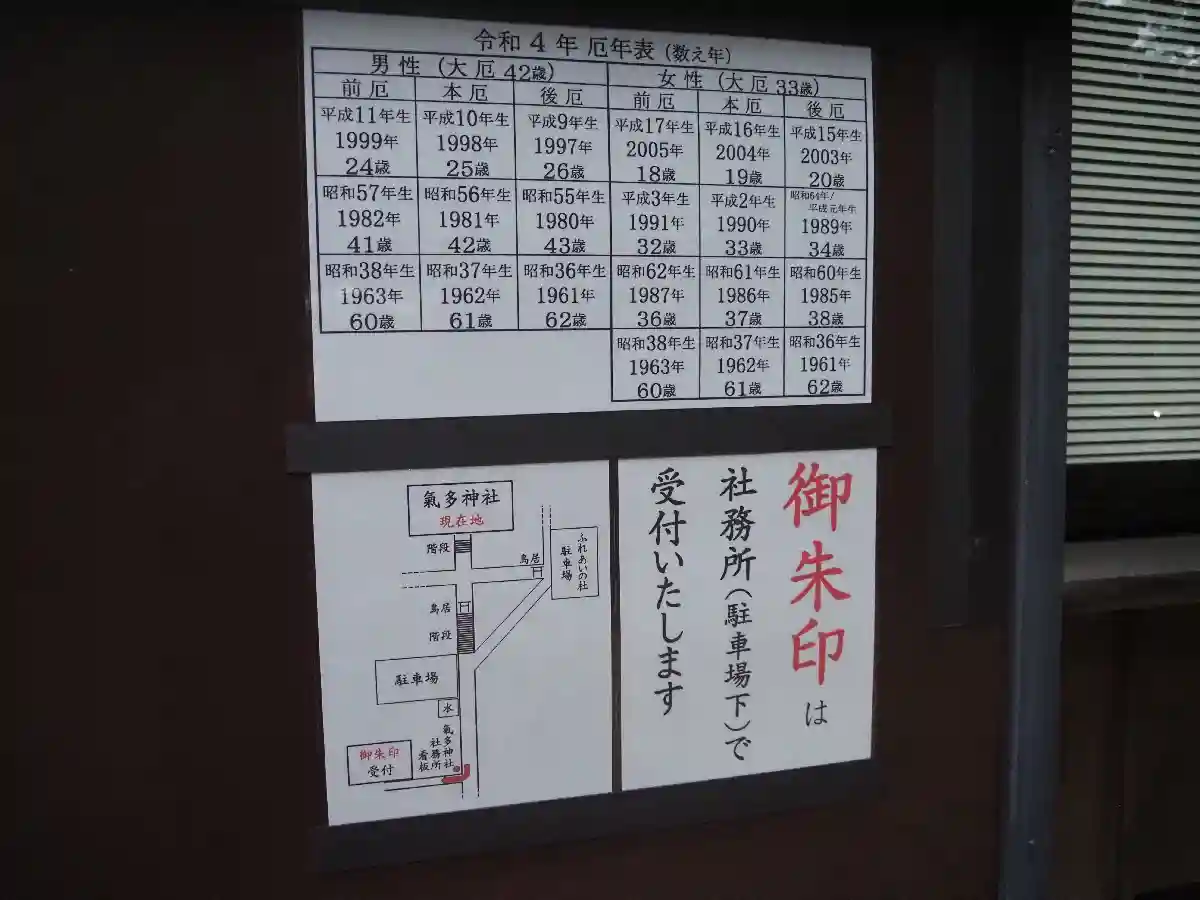 令和4年 厄年表（数え年）
男性（大厄 42歳） 女性（大厄 33歳）
前厄 本厄 後厄 前厄 本厄 後厄
平成11年生 平成10年生 平成9年生 平成17年生 平成16年生 平成15年生
1999年 1998年 1997年 2005年 2004年 2003年
24歳 25歳 26歳 18歳 19歳 20歳
昭和57年生 昭和56年生 昭和55年生 平成3年生 平成2年生 昭和64年/平成元年生
1982年 1981年 1980年 1991年 1990年 1989年
41歳 42歳 43歳 32歳 33歳 34歳
昭和38年生 昭和37年生 昭和36年生 昭和62年生 昭和61年生 昭和60年生
1963年 1962年 1961年 1987年 1986年 1985年
60歳 61歳 62歳 36歳 37歳 38歳
昭和38年生 昭和37年生 昭和36年生
1963年 1962年 1961年
60歳 61歳 62歳
氣多神社
現在地
階段
鳥居
ふれあいの社
駐車場
鳥居
階段
駐車場
水
氣多神社
社務所
看板
御朱印
受付
御朱印は
社務所（駐車場下）で
受付いたします